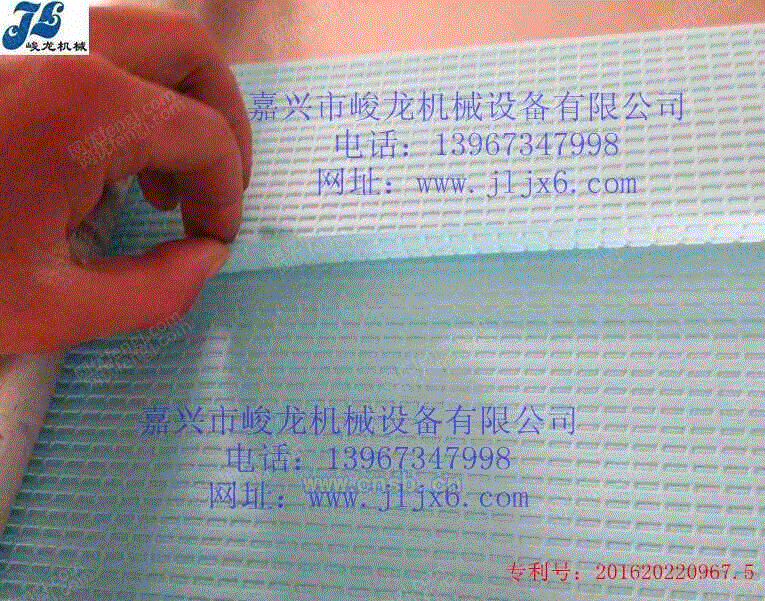 峻龙机械
嘉兴市峻龙机械设备有限公司
电话：13967347998
网址：www.jljx6.com
嘉兴市峻龙机械设备有限公司
电话：13967347998
网址：www.jljx6.com
www.cnsp.cn
专利号：201620220967.5